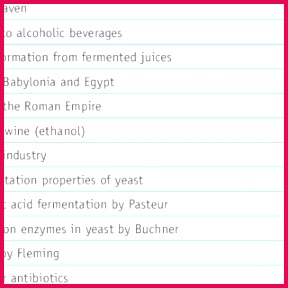 to alcoholic beverages
from fermented juices
Babylonia and Egypt
the Roman Empire
wine (ethanol)
industry
properties of yeast
acid fermentation by Pasteur
on enzymes in yeast by Buchner
by Fleming
antibiotics